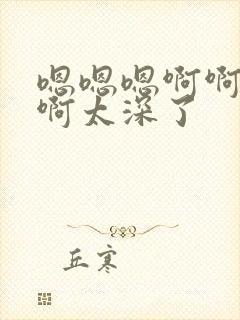 嗯嗯嗯啊啊
啊太深了
丘寒